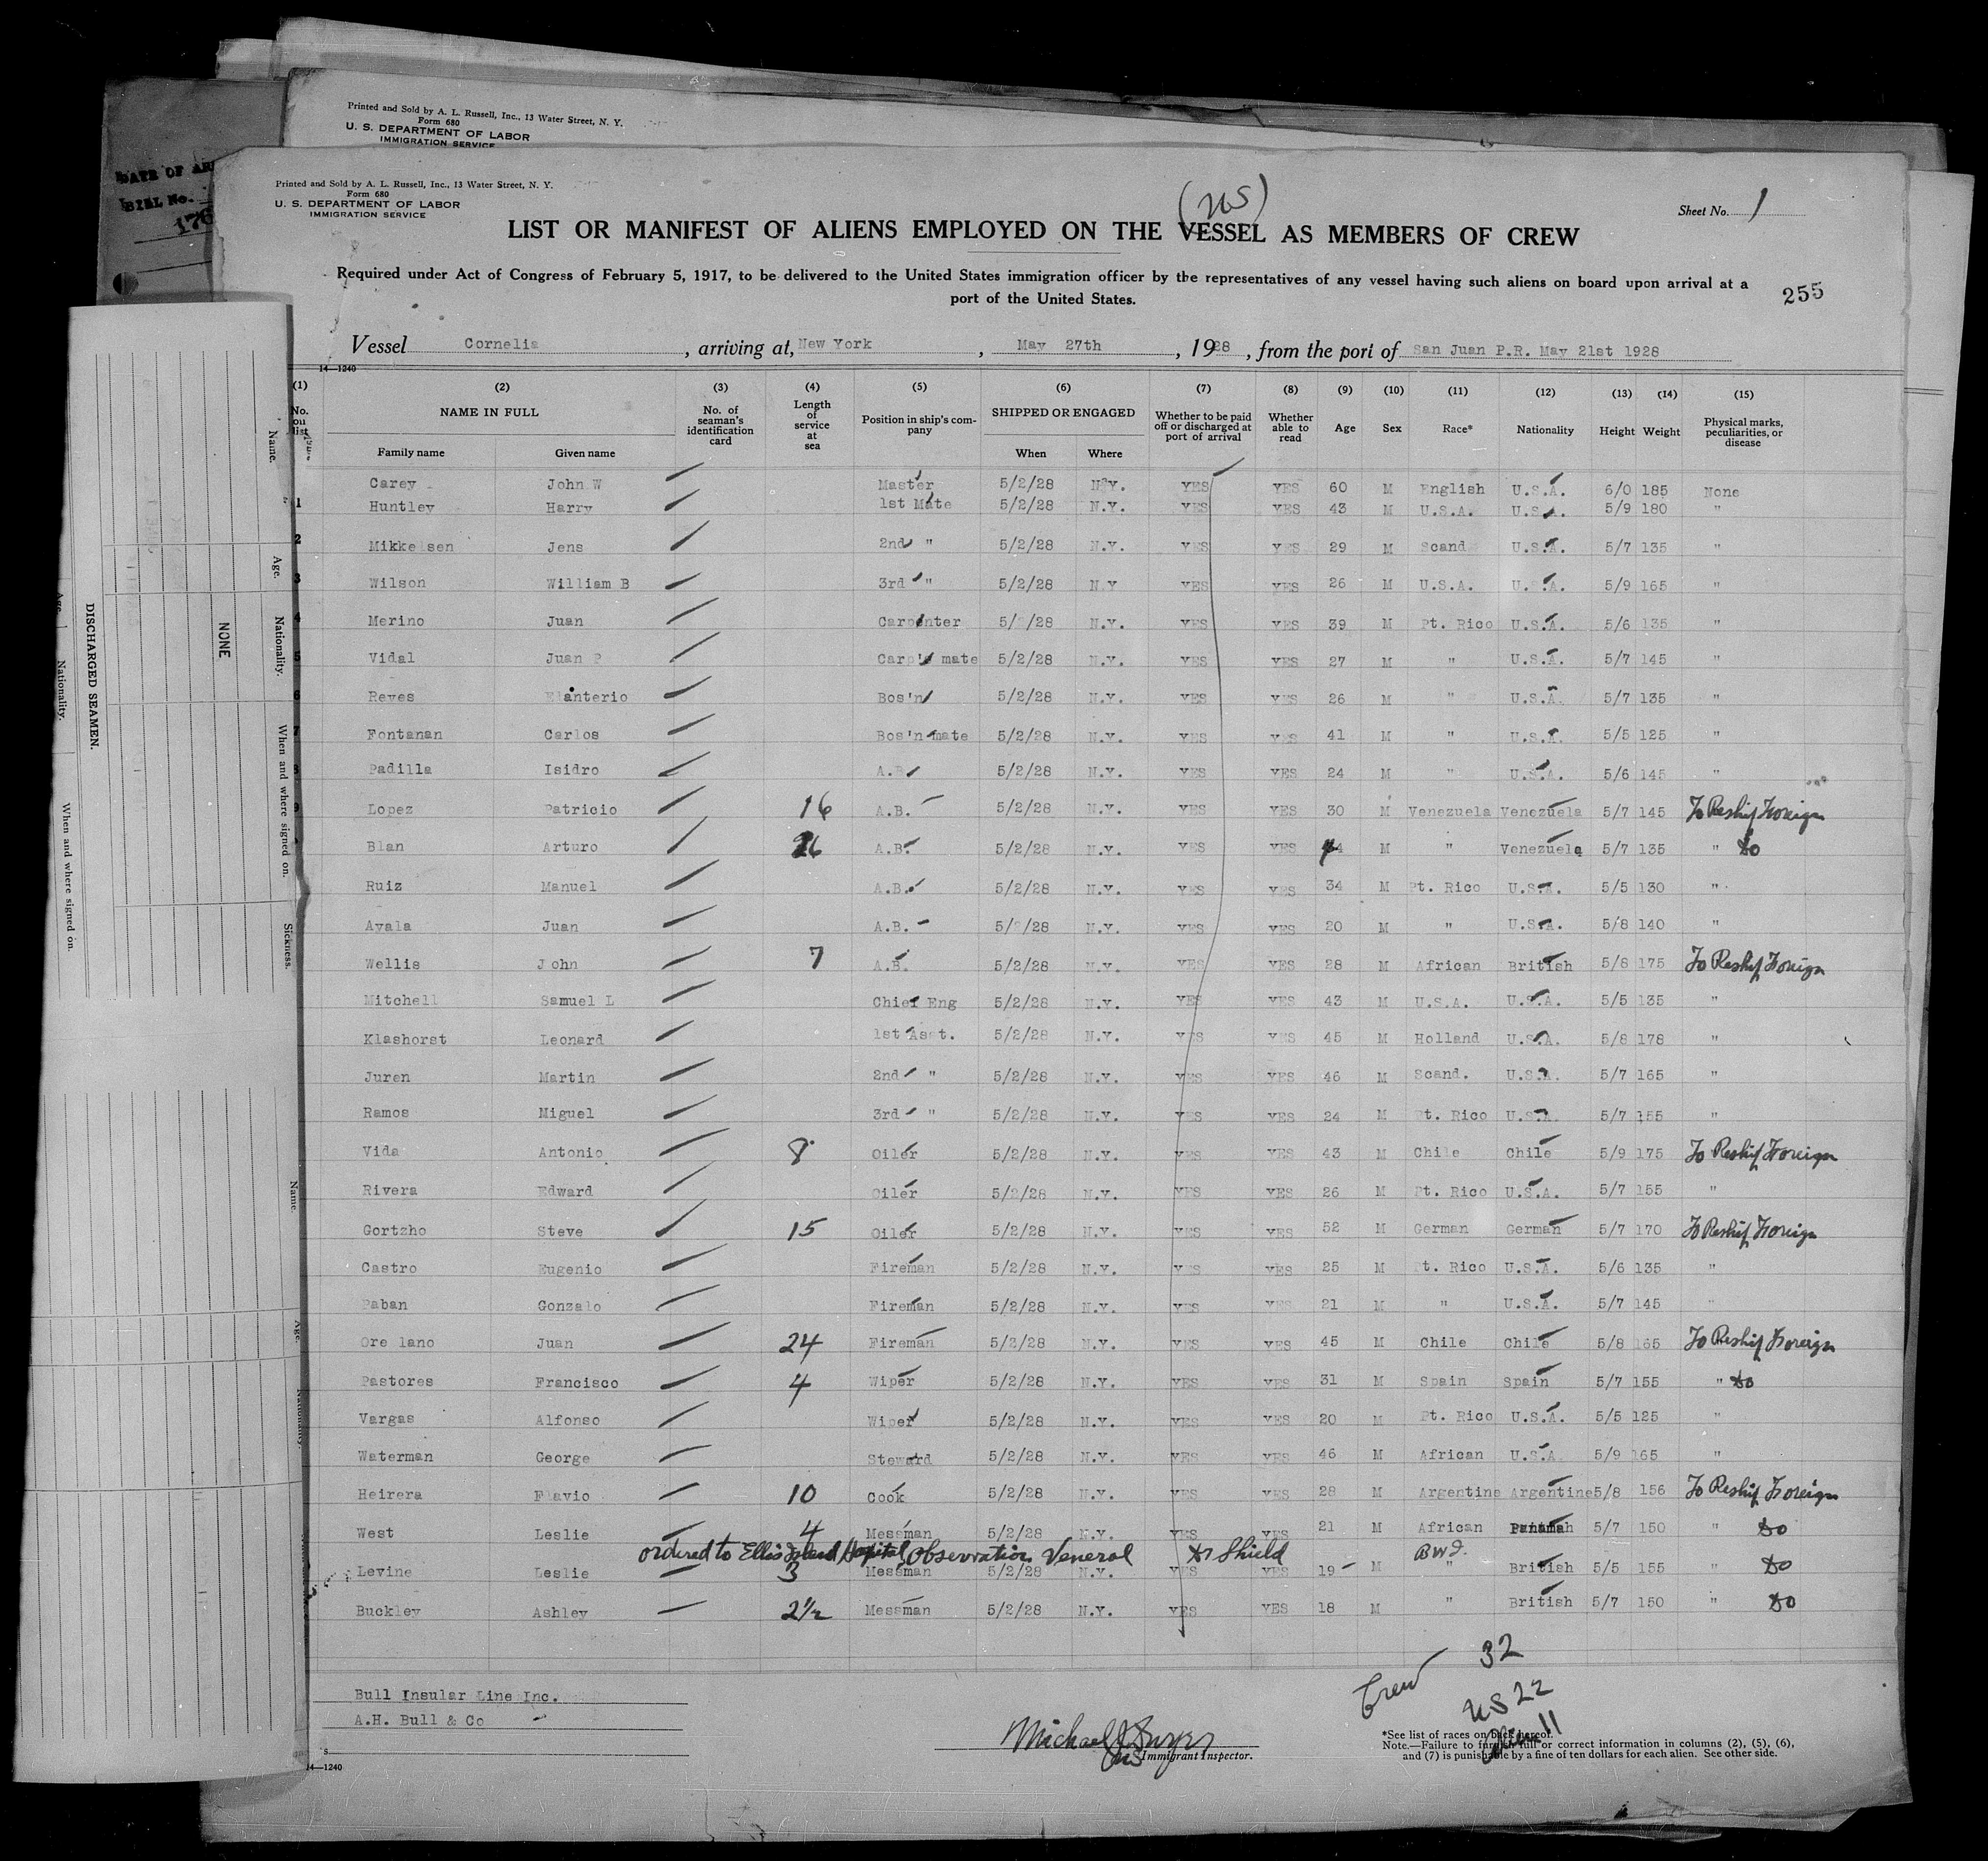 Printed and Sold by A. L. Russell, Inc., 13 Water Street, N. Y.
Form 680
U. S. DEPARTMENT OF LABOR
IMMIGRATION SERVICE
DATE OF
No.
176
Printed and Sold by A. L. Russell, Inc., 13 Water Street, N. Y.
Form 680
U. S. DEPARTMENT OF LABOR
IMMIGRATION SERVICE
(US)
Sheet No. 1
LIST OR MANIFEST OF ALIENS EMPLOYED ON THE VESSEL AS MEMBERS OF CREW
Required under Act of Congress of February 5, 1917, to be delivered to the United States immigration officer by the representatives of any vessel having such aliens on board upon arrival at a
port of the United States.
255
Vessel Cornelia, arriving at, New York, May 27th, 1928, from the port of San Juan P.R. May 21st 1928
14—1240
(1) (2) (3) (4) (5) (6) (7) (8) (9) (10) (11) (12) (13) (14) (15)
No. on list NAME IN FULL No. of seaman's identification card Length of service at sea Position in ship's company SHIPPED OR ENGAGED Whether to be paid off or discharged at port of arrival Whether able to read Age Sex Race* Nationality Height Weight Physical marks, peculiarities, or disease
Family name Given name When Where
Carey John W Master 5/2/28 N.Y. YES YES 60 M English U.S.A. 6/0 185 None
1 Huntley Harry 1st Mate 5/2/28 N.Y. YES YES 43 M U.S.A. U.S.A. 5/9 180 "
2 Mikkelsen Jens 2nd " 5/2/28 N.Y. YES YES 29 M Scand U.S.A. 5/7 135 "
3 Wilson William B 3rd " 5/2/28 N.Y YES YES 26 M U.S.A. U.S.A. 5/9 165 "
4 Merino Juan Carpenter 5/2/28 N.Y. YES YES 39 M Pt. Rico U.S.A. 5/6 135 "
5 Vidal Juan P Carp's mate 5/2/28 N.Y. YES YES 27 M " U.S.A. 5/7 145 "
6 Reyes Elanterio Bos'n 5/2/28 N.Y. YES YES 26 M " U.S.A. 5/7 135 "
7 Fontanan Carlos Bos'n mate 5/2/28 N.Y. YES YES 41 M " U.S.A. 5/5 125 "
8 Padilla Isidro A.B. 5/2/28 N.Y. YES YES 24 M " U.S.A. 5/6 145 "
9 Lopez Patricio 16 A.B. 5/2/28 N.Y. YES YES 30 M Venezuela Venezuela 5/7 145 To Reship Foreign
Blan Arturo 26 A.B. 5/2/28 N.Y. YES YES 44 M " Venezuela 5/7 135 " do
Ruiz Manuel A.B. 5/2/28 N.Y. YES YES 34 M Pt. Rico U.S.A. 5/5 130 "
Ayala Juan A.B. 5/2/28 N.Y. YES YES 20 M " U.S.A. 5/8 140 "
Wellis John 7 A.B. 5/2/28 N.Y. YES YES 28 M African British 5/8 175 To Reship Foreign
Mitchell Samuel L Chief Eng 5/2/28 N.Y. YES YES 43 M U.S.A. U.S.A. 5/5 135 "
Klashorst Leonard 1st Asst. 5/2/28 N.Y. YES YES 45 M Holland U.S.A. 5/8 178 "
Juren Martin 2nd " 5/2/28 N.Y. YES YES 46 M Scand. U.S.A. 5/7 165 "
Ramos Miguel 3rd " 5/2/28 N.Y. YES YES 24 M Pt. Rico U.S.A. 5/7 155 "
Vida Antonio 8 Oiler 5/2/28 N.Y. YES YES 43 M Chile Chile 5/9 175 To Reship Foreign
Rivera Edward Oiler 5/2/28 N.Y. YES YES 26 M Pt. Rico U.S.A. 5/7 155 "
Gortzho Steve 15 Oiler 5/2/28 N.Y. YES YES 52 M German German 5/7 170 To Reship Foreign
Castro Eugenio Fireman 5/2/28 N.Y. YES YES 25 M Pt. Rico U.S.A. 5/6 135 "
Paban Gonzalo Fireman 5/2/28 N.Y. YES YES 21 M " U.S.A. 5/7 145 "
Orellano Juan 24 Fireman 5/2/28 N.Y. YES YES 45 M Chile Chile 5/8 165 To Reship Foreign
Pastores Francisco 4 Wiper 5/2/28 N.Y. YES YES 31 M Spain Spain 5/7 155 " do
Vargas Alfonso Wiper 5/2/28 N.Y. YES YES 20 M Pt. Rico U.S.A. 5/5 125 "
Waterman George Steward 5/2/28 N.Y. YES YES 46 M African U.S.A 5/9 165 "
Heirera Flavio 10 Cook 5/2/28 N.Y. YES YES 28 M Argentine Argentine 5/8 156 To Reship Foreign
West Leslie 4 Messman 5/2/28 N.Y. YES YES 21 M African Panama 5/7 150 " do
ordered to Ellis Island Hospital, Observation Veneral Dr Shield BWI.
Levine Leslie 3 Messman 5/2/28 N.Y. YES YES 19 M " British 5/5 155 " do
Buckley Ashley 2½ Messman 5/2/28 N.Y. YES YES 18 M " British 5/7 150 " do
Crew 32
US 22
Alien 11
Bull Insular Line Inc.
A.H. Bull & Co
Immigrant Inspector.
*See list of races on back hereof.
Note.—Failure to furnish full or correct information in columns (2), (5), (6),
and (7) is punishable by a fine of ten dollars for each alien. See other side.
14—1240
DISCHARGED SEAMEN.
NONE
Name.
Age.
Nationality.
When and where signed on.
Sickness.
Age
Nationality.
When and where signed on.
Name.
Age.
Nationality.